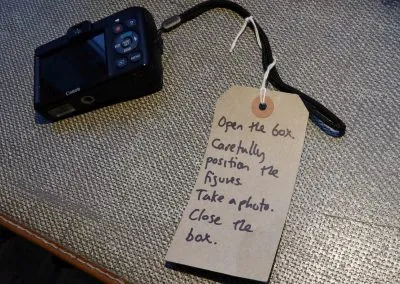 Canon
Open the box.
Carefully
position the
figures.
Take a photo.
Close the
box.